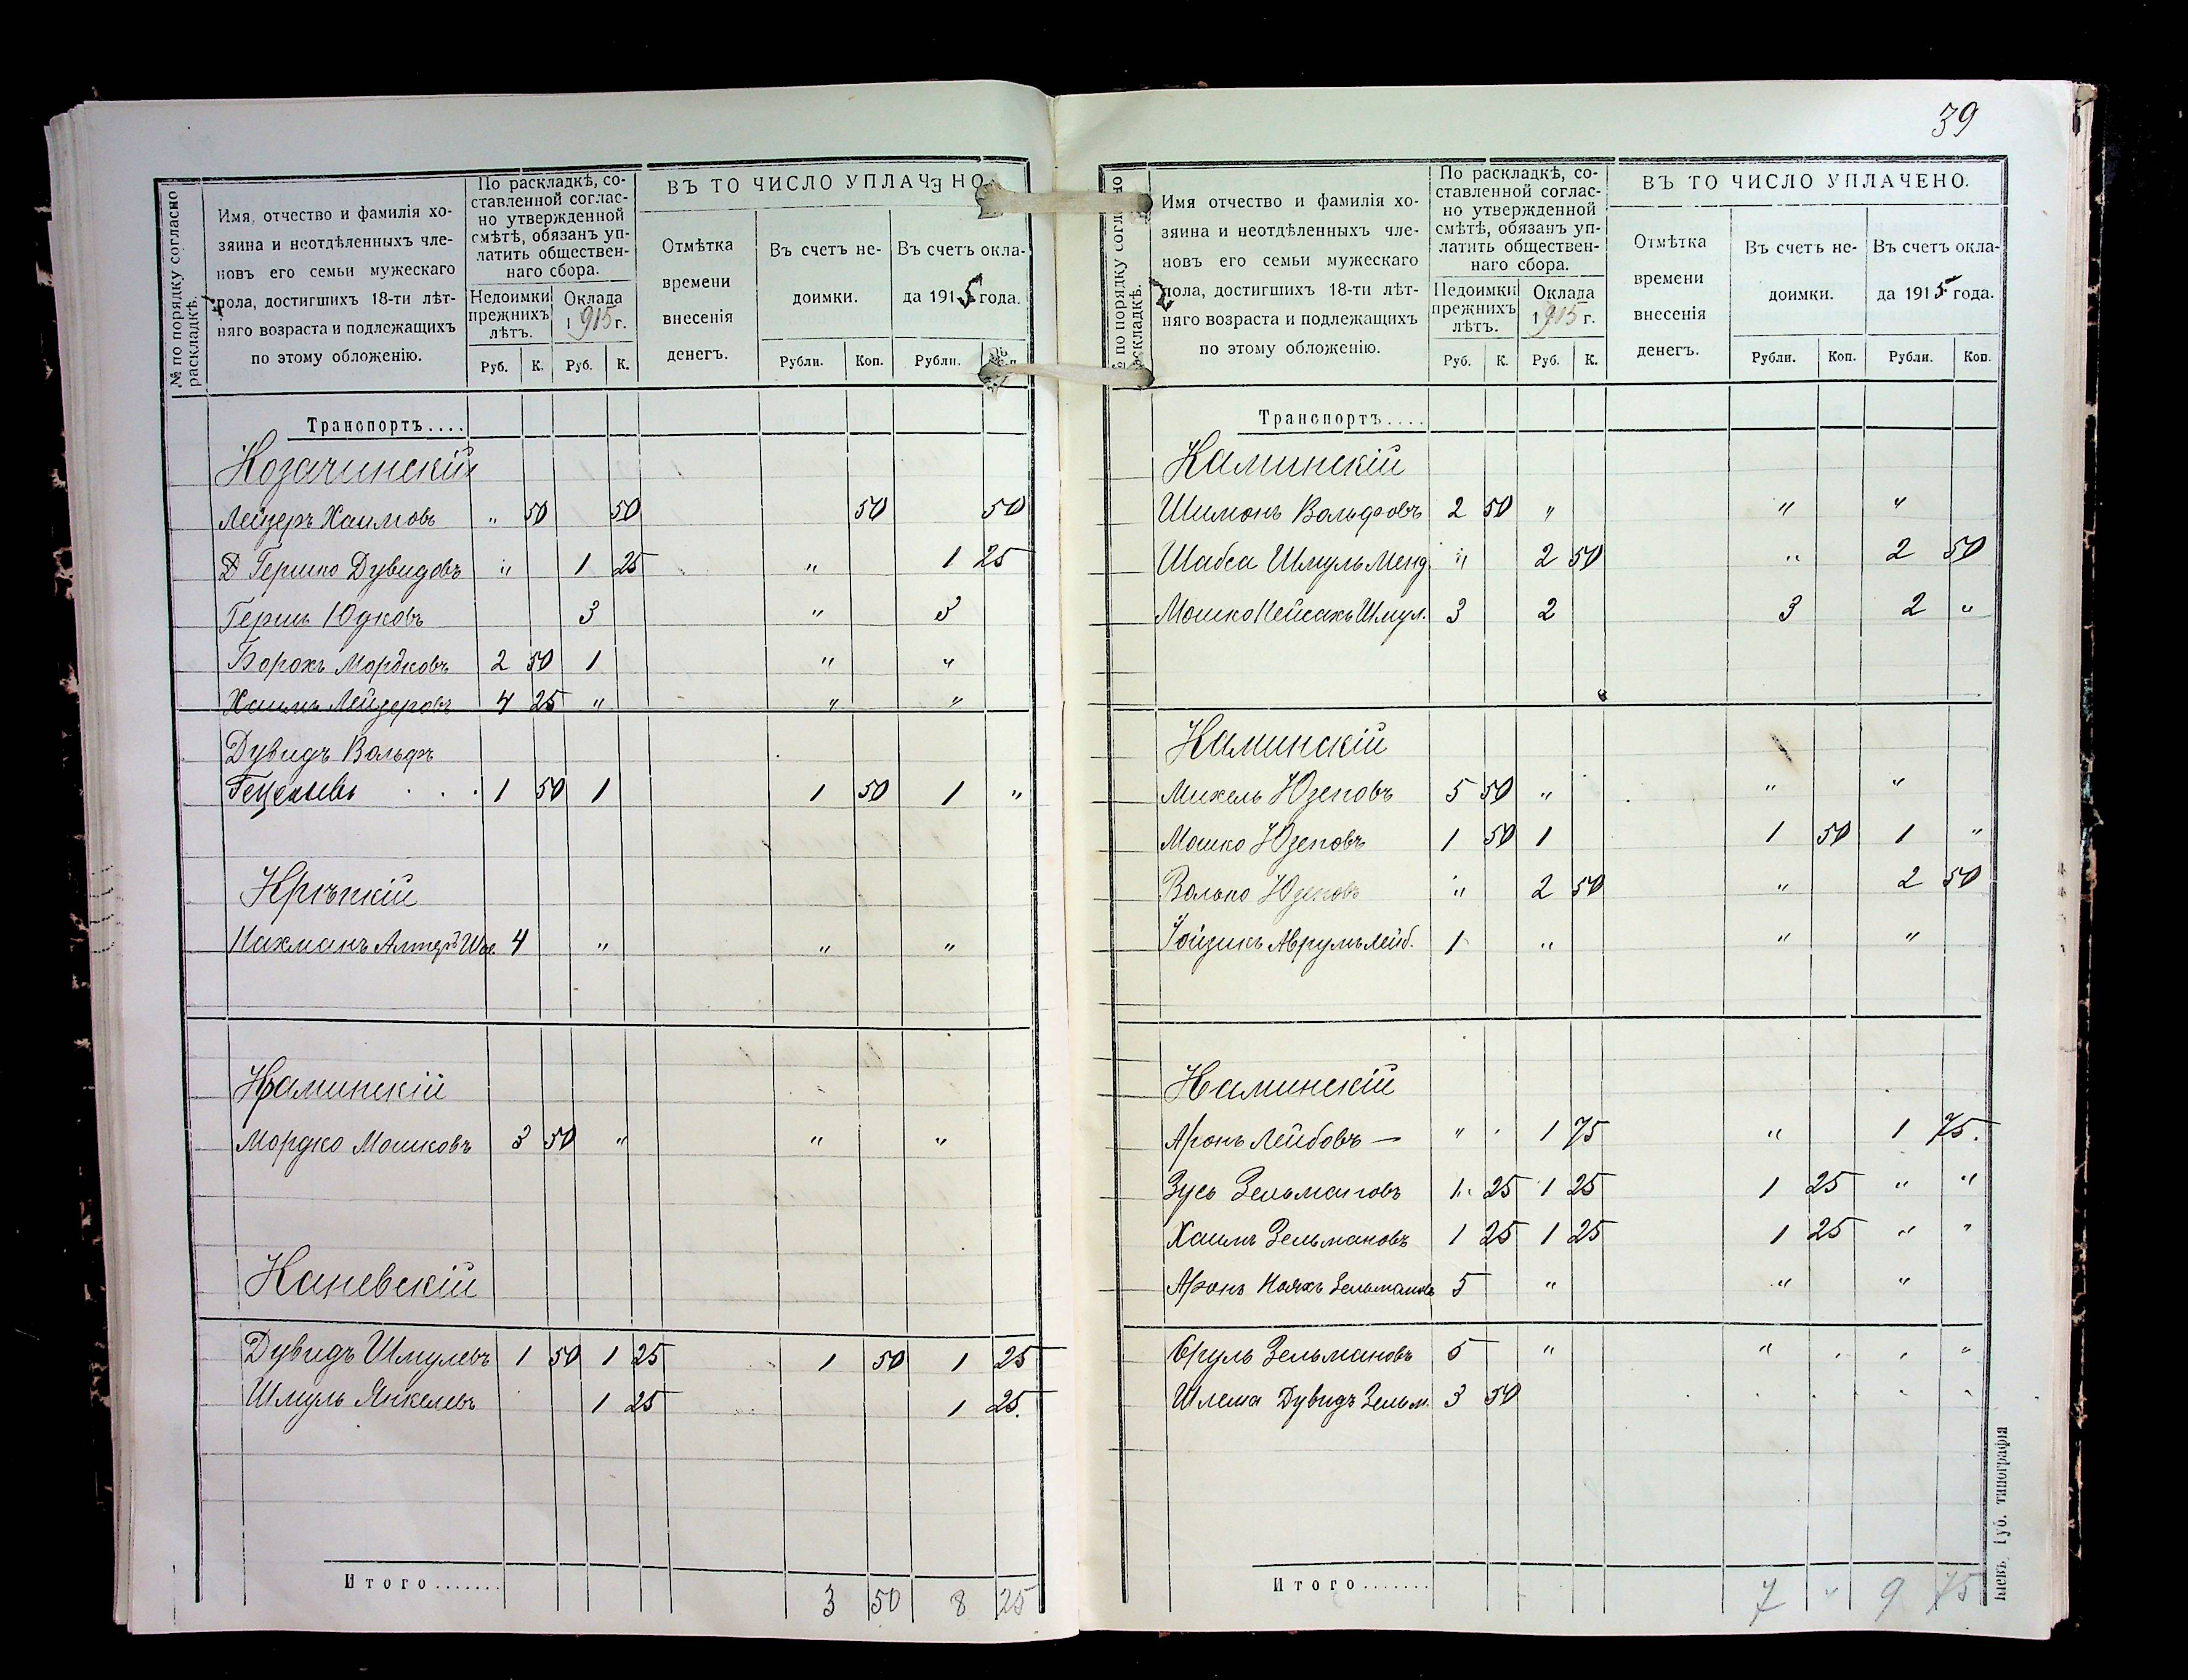 39
№ по порядку согласно раскладкѣ.
Имя, отчество и фамилія хо-
зяина и неотдѣленныхъ чле-
новъ его семьи мужескаго
пола, достигшихъ 18-ти лѣт-
няго возраста и подлежащихъ
по этому обложенію.
По раскладкѣ, со-
ставленной соглас-
но утвержденной
смѣтѣ, обязанъ уп-
латить обществен-
наго сбора.
Недоимки прежнихъ лѣтъ.
Оклада 1915 г.
Руб. К. Руб. К.
ВЪ ТО ЧИСЛО УПЛАЧЕНО.
Отмѣтка
времени
внесенія
денегъ.
Въ счетъ не-
доимки.
Въ счетъ окла-
да 1915 года.
Рубли. Коп. Рубли.
Транспортъ....
Козачинскій
Лейзеръ Хаимовъ " 50 50 50 50
Гершко Дувидовъ " 1 25 " 1 25
Гершъ Юдковъ 3 " 3
Борохъ Мордковъ 2 50 1 " "
Хаимъ Лейзеровъ 4 25 " " "
Дувидъ Вольфъ
Гецелевъ . . . 1 50 1 1 50 1 "
Крѣпкій
Нахманъ Алтеръ 4 " " "
Каминскій
Мордко Мошковъ 3 50 " " "
Каневскій
Дувидъ Шмулевъ 1 50 1 25 1 50 1 25
Шмуль Янкелевъ 1 25 1 25.
Итого....... 3 50 8 25
№ по порядку согласно раскладкѣ.
Имя отчество и фамилія хо-
зяина и неотдѣленныхъ чле-
новъ его семьи мужескаго
пола, достигшихъ 18-ти лѣт-
няго возраста и подлежащихъ
по этому обложенію.
По раскладкѣ, со-
ставленной соглас-
но утвержденной
смѣтѣ, обязанъ уп-
латить обществен-
наго сбора.
Недоимки прежнихъ лѣтъ.
Оклада 1915 г.
Руб. К. Руб. К.
ВЪ ТО ЧИСЛО УПЛАЧЕНО.
Отмѣтка
времени
внесенія
денегъ.
Въ счетъ не-
доимки.
Въ счетъ окла-
да 1915 года.
Рубли. Коп. Рубли. Коп.
Транспортъ....
Каминскій
Шимонъ Вольфовъ 2 50 " " "
Шабса Шмуль Менд. " 2 50 " 2 50
Мошко Пейсахъ Шмул. 3 2 3 2 "
Каминскій
Михель Юзеповъ 5 50 " " "
Мошко Юзеповъ 1 50 1 1 50 1 "
Волько Юзеповъ " 2 50 " 2 50
Іойзикъ Аврумъ Лейб. 1 " " "
Каминскій
Аронъ Лейбовъ — " 1 75 " 1 75.
Зусь Зельмановъ 1 25 1 25 1 25 " "
Хаимъ Зельмановъ 1 25 1 25 1 25 " "
Аронъ Нояхъ Зельмановъ 5 " " "
Сруль Зельмановъ 5 " "
Шлема Дувидъ Зельм. 3 50
Итого....... 7 " 9 75
Кіевъ, Губ. типографія